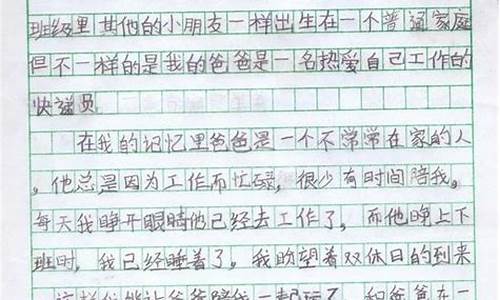 班级里其他的小朋友一样出生在一个普通家庭
但不一样的是我的爸爸是一名热爱自己工作的
快递员
在我的记忆里爸爸是一个不常常在家的人
。他总是因为工作而忙碌，很少有时间陪我。
每天我睁开眼睛他已经去工作了，而他晚上下
班时，我已经睡着了。我盼望着双休日的到来
这样你能让爸爸陪我一起玩了，和爸爸在一